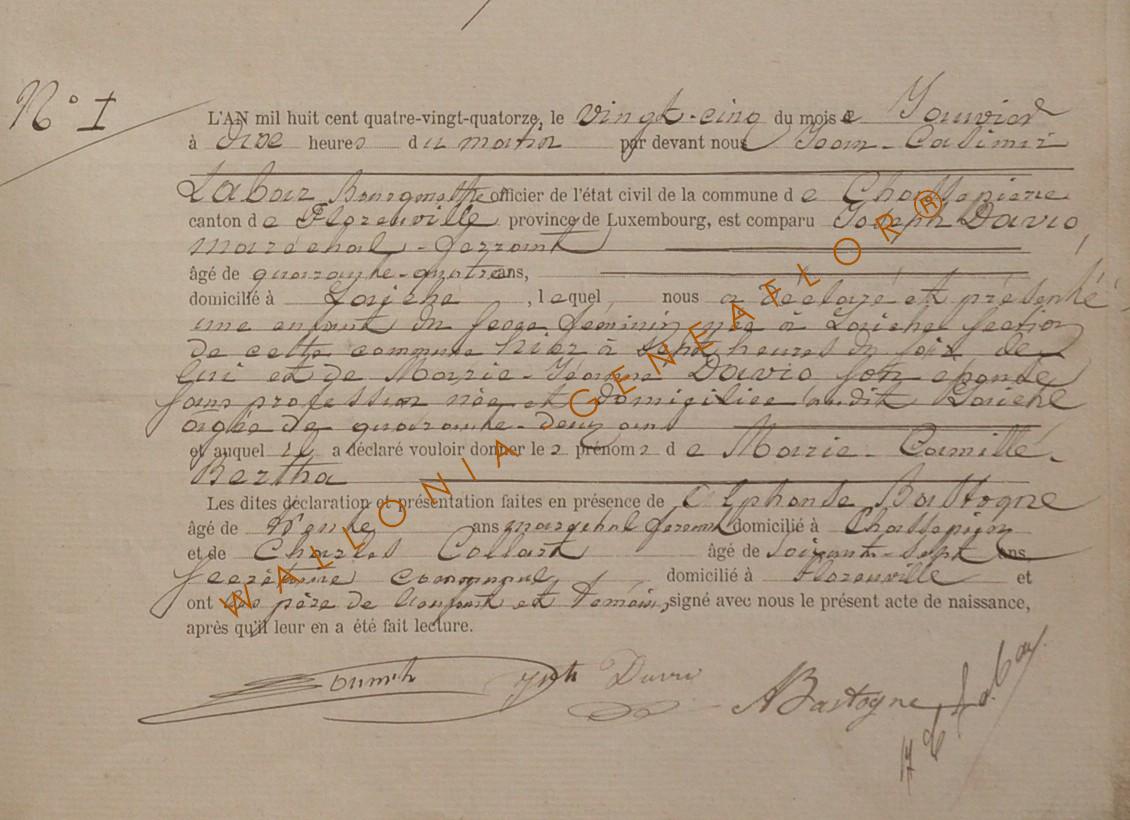 N° 1
L'AN mil huit cent quatre-vingt-quatorze, le vingt-cinq du mois de Janvier
à dix heures du matin par devant nous Jean-Casimir
Labar Bourgmestre officier de l'état civil de la commune de Chassepierre
canton de Florenville province de Luxembourg, est comparu Joseph Davio,
maréchal-ferrant
âgé de quarante-quatre ans,
domicilié à Laiche, lequel nous a déclaré et présenté
une enfant du sexe féminin née à Laiche section
de cette commune hier à sept heures du soir de
lui et de Marie-Jeanne Davio son épouse
sans profession née et domiciliée audit Laiche
âgée de quarante-deux ans
et auquel il a déclaré vouloir donner les prénoms de Marie-Camille-
Bertha
Les dites déclaration et présentation faites en présence de Alphonse Bastogne
âgé de trente ans marechal ferrant domicilié à Chassepierre
et de Charles Collart âgé de soixante-sept ans
secrétaire communal domicilié à Florenville et
ont les père de l'enfant et témoins, signé avec nous le présent acte de naissance,
après qu'il leur en a été fait lecture.
Jph Davio
ABastogne
Labar
WALLONIA GENEAFLOR®